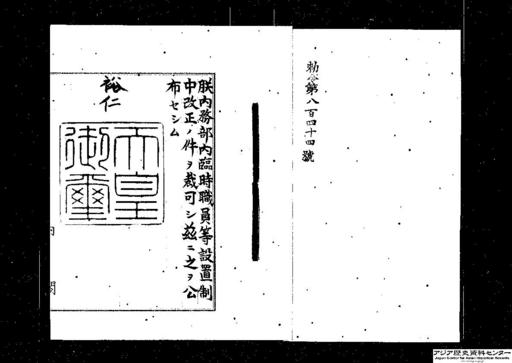 勅令第八百四十四號
朕內務部內臨時職員等設置制
中改正ノ件ヲ裁可シ茲ニ之ヲ公
布セシム
裕仁
天皇
御璽
內閣
アジア歴史資料センター
Japan Center for Asian Historical Records